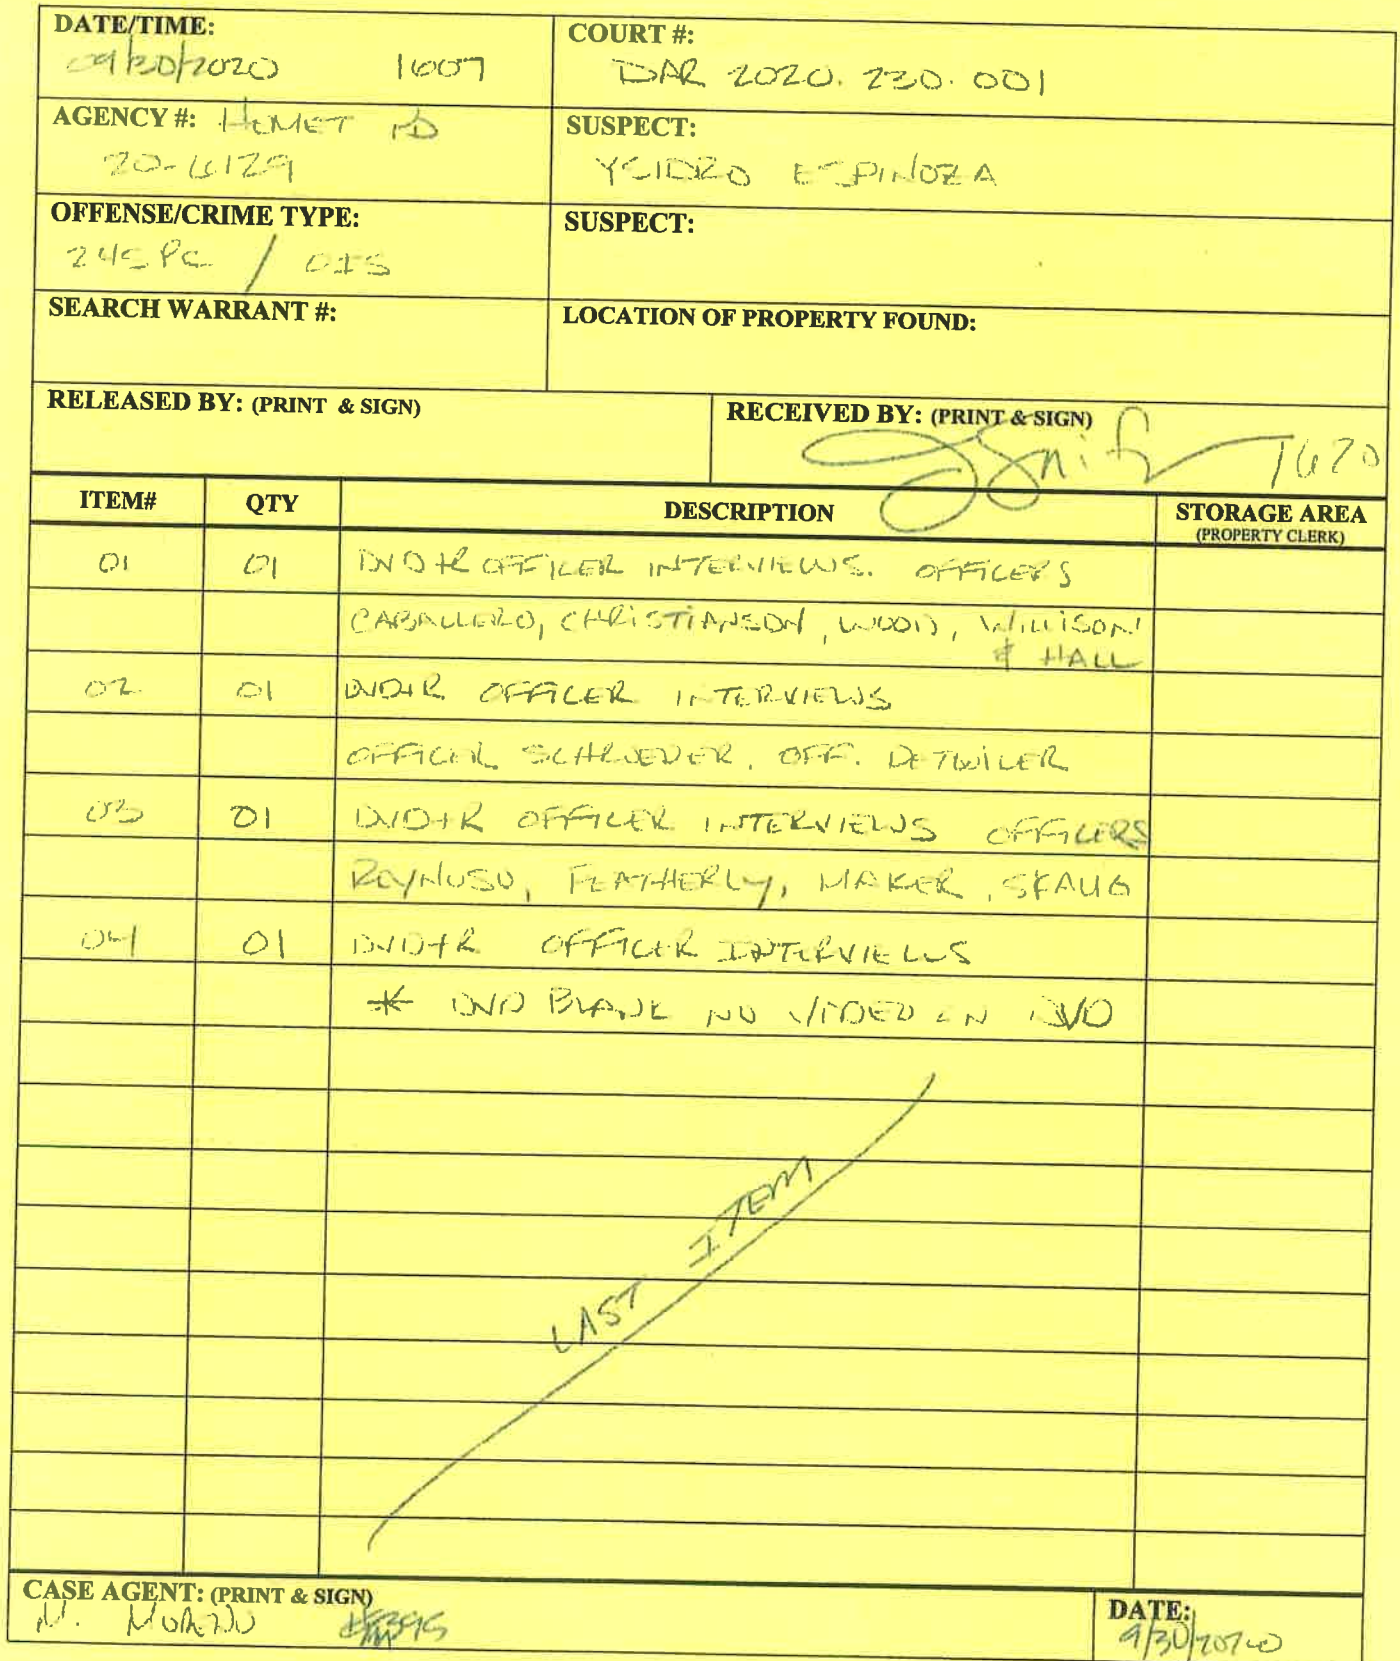 DATE/TIME:
09/30/2020 1607
COURT #:
DAR 2020. 230. 001
AGENCY #: HEMET PD
20-6129
SUSPECT:
YSIDRO ESPINOZA
OFFENSE/CRIME TYPE:
245 PC / OIS
SUSPECT:
SEARCH WARRANT #:
LOCATION OF PROPERTY FOUND:
RELEASED BY: (PRINT & SIGN)
RECEIVED BY: (PRINT & SIGN)
1620
ITEM# QTY DESCRIPTION STORAGE AREA
(PROPERTY CLERK)
01 01 DVD+R OFFICER INTERVIEWS. OFFICERS
CABALLERO, CHRISTIANSON, WOOD, WILLISON
& HALL
02 01 DVD+R OFFICER INTERVIEWS
OFFICER SCHROEDER, OFF. DETWILER
03 01 DVD+R OFFICER INTERVIEWS OFFICERS
REYNOSO, FEATHERLY, MAKER, SKAUG
04 01 DVD+R OFFICER INTERVIEWS
* DVD BLANK NO VIDEO ON DVD
LAST ITEM
CASE AGENT: (PRINT & SIGN)
N. MORENO
DATE:
9/30/2020